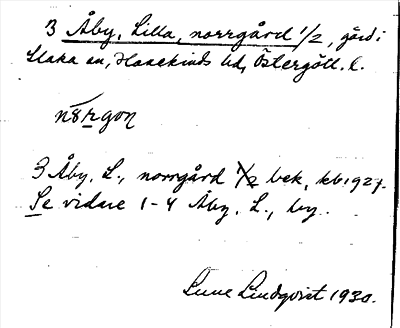 3 Åby, Lilla, norrgård 1/2, gård i
Slaka sn, Hanekinds hd, Östergötl. l.
3 Åby, L., norrgård 1/2 bek, kb 1927.
Se vidare 1-4 Åby, L., by.
Sune Lindqvist 1930.